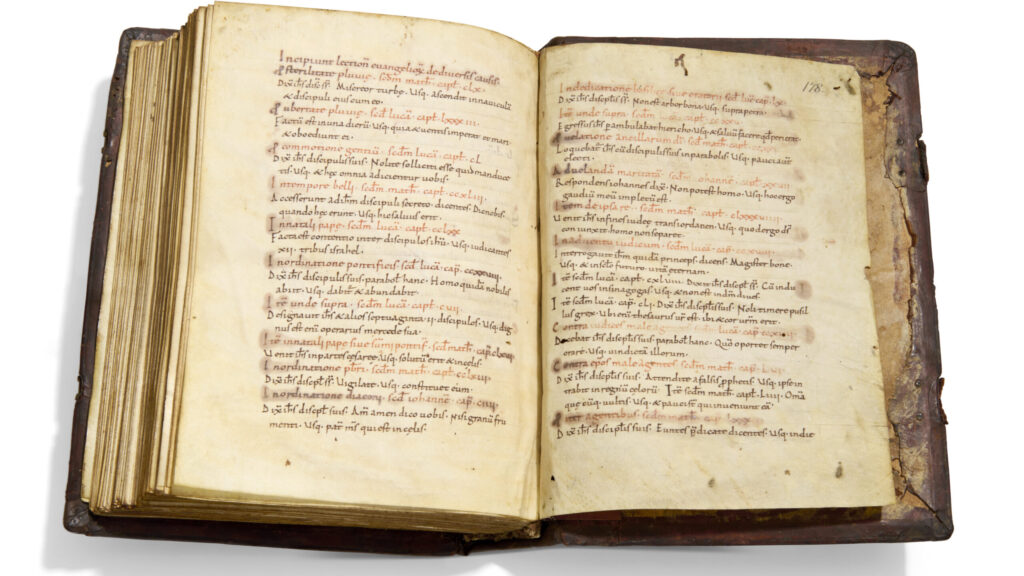 Incipiunt lection̄ euangeliȩ de diuersis causis.
P sterilitate pluuiȩ · scd̄m math̄ · capt̄ · clx ·
Dix̄ ih̄s disf̄ s̄s̄ · Misereor turbȩ · Usq· ascendit in nauiculā
& discipuli eius cum eo ·
P ubertate pluuiȩ · scd̄ lucā · capt̄ · lxxxiii ·
Factū est in una dierū · Usq· quia & uentis imperat et mari
& oboediunt ei ·
P commotione gentiū · scd̄m lucā · capt̄ · cl
Dix̄ ih̄s discipulis suis · Nolite solliciti esse quid manduce
tis · Usq· & hȩc omnia adicientur uobis ·
In tempore belli · scd̄m math̄ · capt̄ · ccxliii ·
Accesserunt ad ih̄m discipuli secreto · dicentes · Dic nobis
quando hȩc erunt · Usq· hic saluus erit ·
In natali papȩ · scd̄m lucā · capt̄ · cclxx
Facta est contentio inter discipulos ih̄u · Usq· iudicantes
xii · tribus israhel ·
In ordinatione pontificis · scd̄ lucā · cap̄ · ccxxviiii ·
Dix̄ ih̄s discipulis suis · parabolā hanc · Homo quidā nobilis
abiit · Usq· dabit̄ & abundabit ·
Itē unde supra · scd̄m lucā · capt̄ · cvii ·
Designauit ih̄s & alios septuaginta ii · discipulos · Usq· dig
nus est enī operarius mercede sua ·
Itē in natali papȩ siue sum̄i pontif̄ · scd̄ math̄ · cap̄
Uenit ih̄s in partes cesareȩ · Usq· solutū erit & in cȩlis ·
In ordinatione pbrī · scd̄ math̄ · capt̄ · cclxvii ·
Dix̄ ih̄s discipt̄ s̄s̄ · Uigilate · Usq· constituet eum ·
In ordinatione diaconi · scd̄ iohannē · cap̄ · ciiii ·
Dix̄ ih̄s discipt̄ suis · Am̄ amen dico uobis · Nisi granū fru
menti · Usq· pat̄ m̄s qui est in cȩlis ·
178 ·
In dedicatione siue oratorii scd̄ luc̄ cap̄
Dix̄ ih̄s discipt̄ s̄s̄ · Non est arbor bona · Usq· supra petrā ·
Itē unde supra · scd̄m lucā · capt̄
Egressus ih̄s pambulabat hiericho · Usq· & saluū facere qd̄ perierat ·
Uelatione ancillarum dī · scd̄ math̄ · cap̄
Loquebat̄ ih̄s cū discipulis suis in parabolis · Usq· pauci uero
electi ·
Ad uelandā maritatā · scd̄m iohannē · cap̄
Respondens iohannes dix̄ · Non potest homo · Usq· hoc ergo
gaudiū meū impletū est ·
Item de ipsa re · scd̄m math̄ · capt̄ · clxxxviiii ·
Uenit ih̄s in fines iudeȩ trans iordanen · Usq· quod ergo ds̄
coniunxit homo non separet ·
In aduentu iudicum · scd̄m lucā · cap̄
Interrogauit ih̄m quidā princeps dicens · Magister bone ·
Usq· & in sc̄lo futuro uitā eternam ·
Itē scd̄m lucā · capt̄ · cxlviii · Dix̄ ih̄s discipt̄ s̄s̄ · Cū indu
cent uos in sinagogas · Usq· & non est in dm̄ diues ·
Itē scd̄m lucā · cap̄ · cli · Dix̄ ih̄s discipulis suis · Noli timere pusil
lus grex · Ubi enī thesaurus ur̄ est · ibi & cor ur̄m erit ·
Contra iudices male agentes ·
Dicebat ih̄s discipt̄is suis parabolā hanc · Quō oportet semper
orare · Usq· uindictā illorum ·
Contra epōs male agentes · scd̄m math̄ · capt̄ · lvi ·
Dix̄ ih̄s discipt̄is suis · Attendite a falsis pphetis · Usq· ipse in
trabit in regnū cȩlorū · Itē scd̄m math̄ · capt̄ · liiii · Omā
quȩcūq· uultis · Usq· & pauci st̄ qui inueniunt eā ·
Iter agentibus · scd̄m math̄ · cap̄ · lxxx
Dix̄ ih̄s discipt̄is suis · Euntes p̄dicate dicentes · Usq· in die